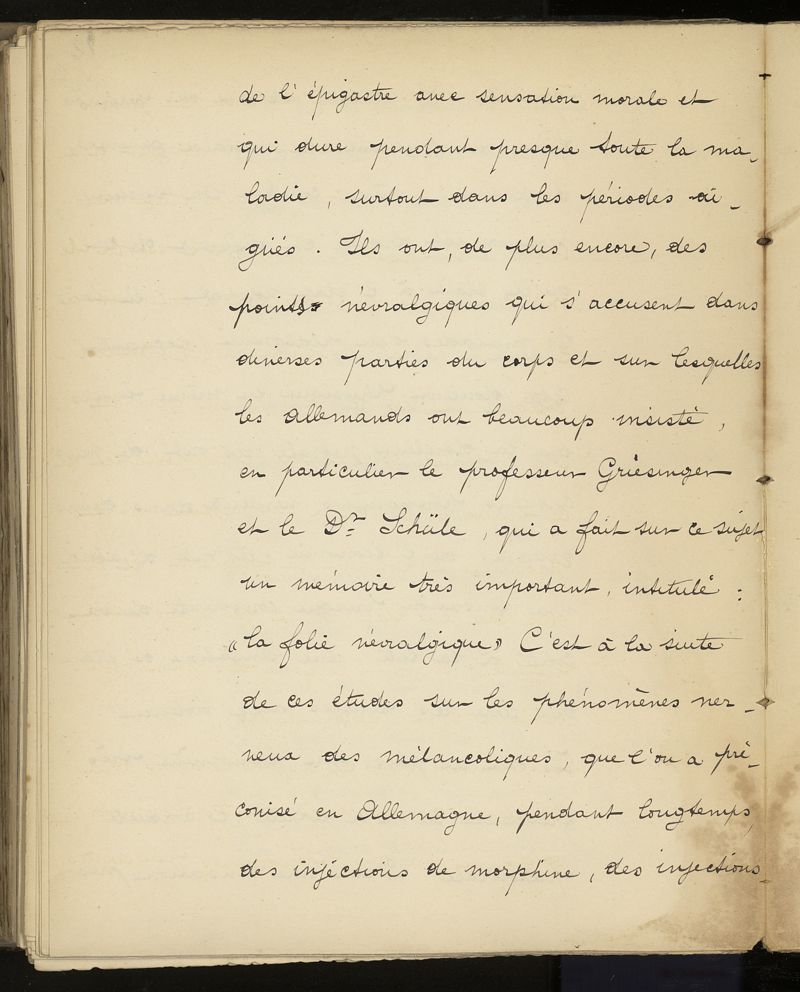 de l'épigastre avec sensation morale et
qui dure pendant presque toute la ma-
ladie, surtout dans les périodes ai-
güés. Ils ont, de plus encore, des
points névralgiques qui s'accusent dans
diverses parties du corps et sur lesquelles
les allemands ont beaucoup insisté,
en particulier le professeur Griésinger
et le Dr Schüle, qui a fait sur ce sujet
un mémoire très important, intitulé :
"la folie névralgique" C'est à la suite
de ces études sur les phénomènes ner-
veux des mélancoliques, que l'on a pré-
conisé en Allemagne, pendant longtemps,
des injections de morphine, des injections